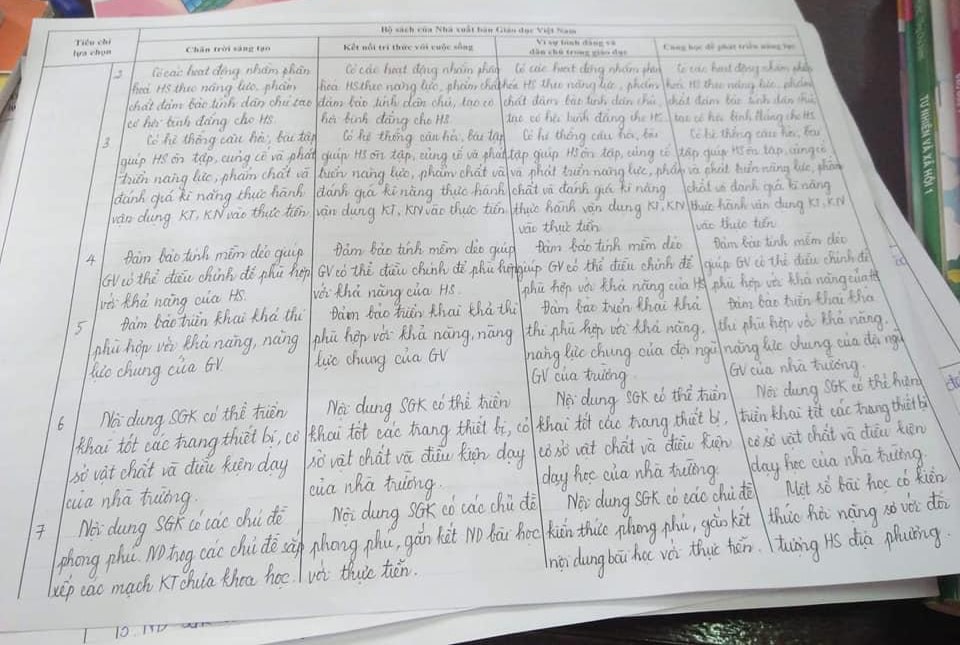 Tiêu chí lựa chọn
Bộ sách của Nhà xuất bản Giáo dục Việt Nam
Chân trời sáng tạo
Kết nối tri thức với cuộc sống
Vì sự bình đẳng và dân chủ trong giáo dục
Cùng học để phát triển năng lực
2
Có các hoạt động nhằm phân
hoá HS theo năng lực, phẩm
chất đảm bảo tính dân chủ tạo
cơ hội bình đẳng cho HS.
Có các hoạt động nhằm phân
hoá HS theo năng lực, phẩm chất
đảm bảo tính dân chủ, tạo cơ
hội bình đẳng cho HS.
Có các hoạt động nhằm phân
hóa HS theo năng lực, phẩm
chất đảm bảo tính dân chủ,
tạo cơ hội bình đẳng cho HS.
Có các hoạt động nhằm phân
hoá HS theo năng lực, phẩm
chất đảm bảo tính dân chủ,
tạo cơ hội bình đẳng cho HS.
3
Có hệ thống câu hỏi, bài tập
giúp HS ôn tập, củng cố và phát
triển năng lực, phẩm chất và
đánh giá kĩ năng thực hành
vận dụng KT, KN vào thực tiễn
Có hệ thống câu hỏi, bài tập
giúp HS ôn tập, củng cố và phát
triển năng lực, phẩm chất và
đánh giá kĩ năng thực hành
vận dụng KT, KN vào thực tiễn
Có hệ thống câu hỏi, bài
tập giúp HS ôn tập, củng cố
và phát triển năng lực, phẩm
chất và đánh giá kĩ năng
thực hành vận dụng KT, KN
vào thực tiễn
Có hệ thống câu hỏi, bài
tập giúp HS ôn tập, củng cố
và phát triển năng lực, phẩm
chất và đánh giá kĩ năng
thực hành vận dụng KT, KN
vào thực tiễn
4
Đảm bảo tính mềm dẻo giúp
GV có thể điều chỉnh để phù hợp
với khả năng của HS.
Đảm bảo tính mềm dẻo giúp
GV có thể điều chỉnh để phù hợp
với khả năng của HS.
Đảm bảo tính mềm dẻo
giúp GV có thể điều chỉnh để
phù hợp với khả năng của HS
Đảm bảo tính mềm dẻo
giúp GV có thể điều chỉnh để
phù hợp với khả năng của HS
5
Đảm bảo triển khai khả thi
phù hợp với khả năng, năng
lực chung của GV
Đảm bảo triển khai khả thi
phù hợp với khả năng, năng
lực chung của GV
Đảm bảo triển khai khả
thi phù hợp với khả năng,
năng lực chung của đội ngũ
GV của trường.
Đảm bảo triển khai khả
thi phù hợp với khả năng.
năng lực chung của đội ngũ
GV của nhà trường.
6
Nội dung SGK có thể triển
khai tốt các trang thiết bị, cơ
sở vật chất và điều kiện dạy
của nhà trường.
Nội dung SGK có thể triển
khai tốt các trang thiết bị, cơ
sở vật chất và điều kiện dạy
của nhà trường.
Nội dung SGK có thể triển
khai tốt các trang thiết bị,
cơ sở vật chất và điều kiện
dạy học của nhà trường.
Nội dung SGK có thể hiện
triển khai tốt các trang thiết bị
cơ sở vật chất và điều kiện
dạy học của nhà trường.
7
Nội dung SGK có các chủ đề
phong phú. ND trog các chủ đề sắp
xếp các mạch KT chưa khoa học.
Nội dung SGK có các chủ đề
phong phú, gắn kết ND bài học
với thực tiễn.
Nội dung SGK có các chủ đề
kiến thức phong phú, gắn kết
nội dung bài học với thực tiễn.
Một số bài học có kiến
thức hơi nặng so với đối
tượng HS địa phương.
TỰ NHIÊN VÀ XÃ HỘI 1